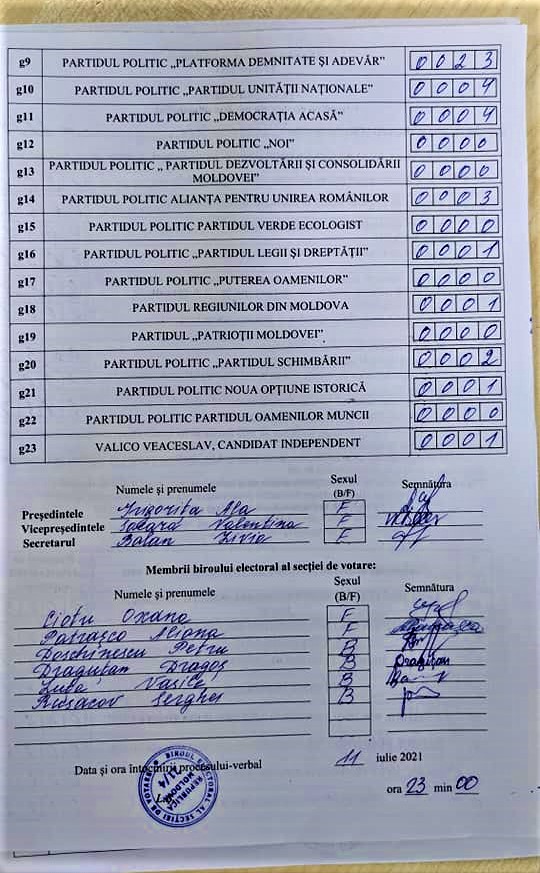 g9 PARTIDUL POLITIC „PLATFORMA DEMNITATE ȘI ADEVĂR” 0 0 2 3
g10 PARTIDUL POLITIC „PARTIDUL UNITĂȚII NAȚIONALE” 0 0 0 4
g11 PARTIDUL POLITIC „DEMOCRAȚIA ACASĂ” 0 0 0 4
g12 PARTIDUL POLITIC „NOI” 0 0 0 0
g13 PARTIDUL POLITIC „ PARTIDUL DEZVOLTĂRII ȘI CONSOLIDĂRII
MOLDOVEI” 0 0 0 0
g14 PARTIDUL POLITIC ALIANȚA PENTRU UNIREA ROMÂNILOR 0 0 0 3
g15 PARTIDUL POLITIC PARTIDUL VERDE ECOLOGIST 0 0 0 0
g16 PARTIDUL POLITIC „PARTIDUL LEGII ȘI DREPTĂȚII” 0 0 0 1
g17 PARTIDUL POLITIC „PUTEREA OAMENILOR” 0 0 0 0
g18 PARTIDUL REGIUNILOR DIN MOLDOVA 0 0 0 1
g19 PARTIDUL „PATRIOȚII MOLDOVEI” 0 0 0 0
g20 PARTIDUL POLITIC „PARTIDUL SCHIMBĂRII” 0 0 0 2
g21 PARTIDUL POLITIC NOUA OPȚIUNE ISTORICĂ 0 0 0 1
g22 PARTIDUL POLITIC PARTIDUL OAMENILOR MUNCII 0 0 0 0
g23 VALICO VEACESLAV, CANDIDAT INDEPENDENT 0 0 0 1
Numele și prenumele Sexul (B/F) Semnătura
Președintele Ala F
Vicepreședintele Valentina F
Secretarul Balan F
Membrii biroului electoral al secției de votare:
Numele și prenumele Sexul (B/F) Semnătura
Ciotu Oxana F
Patrașco Aliona F
Doschinescu Petru B
Dragutan Dragoș B Dragutan
Vasile B
Rusacov Serghei B
Data și ora întocmirii procesului-verbal 11 iulie 2021
ora 23 min 00
BIROUL ELECTORAL AL SECȚIEI DE VOTARE
REPUBLICA MOLDOVA